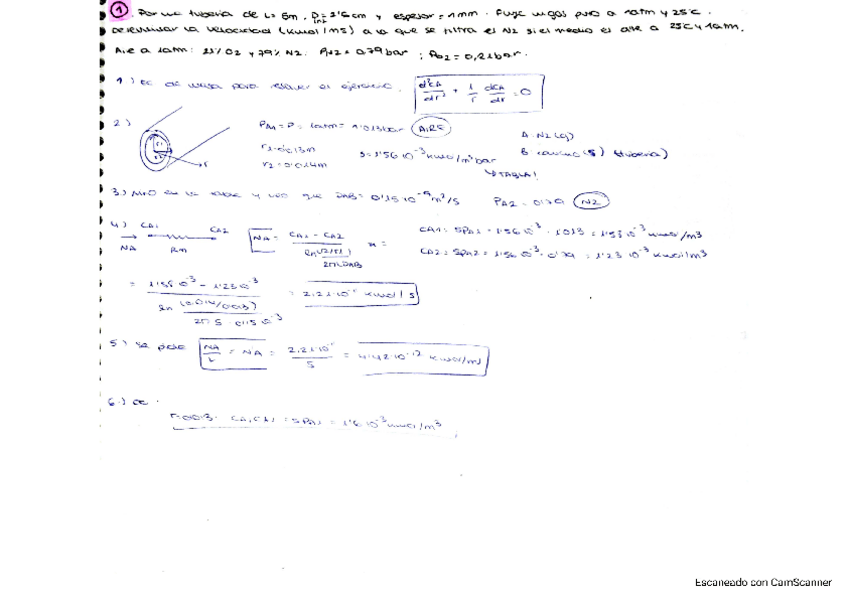 ① Por una tubería de L= 5m, Dint= 2'6cm y espesor = 1mm. Fluye N2 gas puro a 1atm y 25ºC.
Determinar la velocidad (kmol/ms) a la que se filtra el N2 si el medio es aire a 25ºC y 1atm.
Aire a 1atm: 21% O2 y 79% N2. PN2 = 0.79 bar ; PO2 = 0,21 bar.
1.) ec de para resolver el ejercicio. d²CA/dr² + 1/r dCA/dr = 0
2.) PA1 = P = 1atm = 1'013 bar AIRE A: N2 (g)
r1 = 0'013m S = 1'56·10⁻³ kmol/m³bar B caucho (S) (tubería)
r2 = 0'014m ↳ TABLA!
3.) en la tabla y veo que DAB = 0'15·10⁻⁹ m²/s PA2 = 0.79 N2
4.) CA1 CA2 NA = CA1 - CA2 / ln(r2/r1) / 2πLDAB = CA1 = SPA1 = 1'56·10⁻³ · 1.013 = 1'53·10⁻³ kmol/m3
NA Rm CA2 = SPA2 = 1'56·10⁻³ · 0.79 = 1'23·10⁻³ kmol/m3
= 1'55·10⁻³ - 1'23·10⁻³ / ln(0.014/0.013) / 2π·5· = kmol/s
5.) Se pide NA/L = NA = / 5 = 4'42·10⁻¹² kmol/ms
6.) cc.
CA, CA1 = SPA1 = 1'6·10⁻³ kmol/m³
Escaneado con CamScanner